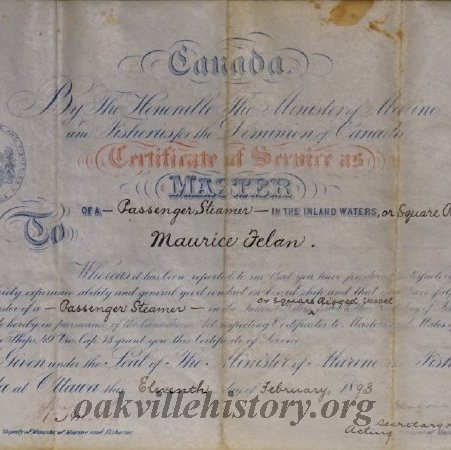 Canada.
By The Honorable The Minister of Marine
and Fisheries for the Dominion of Canada
Certificate of Service as
MASTER
OF A — Passenger Steamer — IN THE INLAND WATERS, or Square R
To
Maurice Felan.
Whereas it has been reported to me that you have
experience ability and general good conduct on board ship and that you have
or Square Rigged Vessel
ster of a — Passenger Steamer — in the Inland
hereby in pursuance of the Act respecting Certificates to Masters and Mates of
Ships, 49 Vic Cap 73 grant you this Certificate of Service
Given under the Seal of The Minister of Marine Fish
at Ottawa this Eleventh day of February, 1893
oakvillehistory.org
Deputy of Minister of Marine and Fisheries
Acting secretary